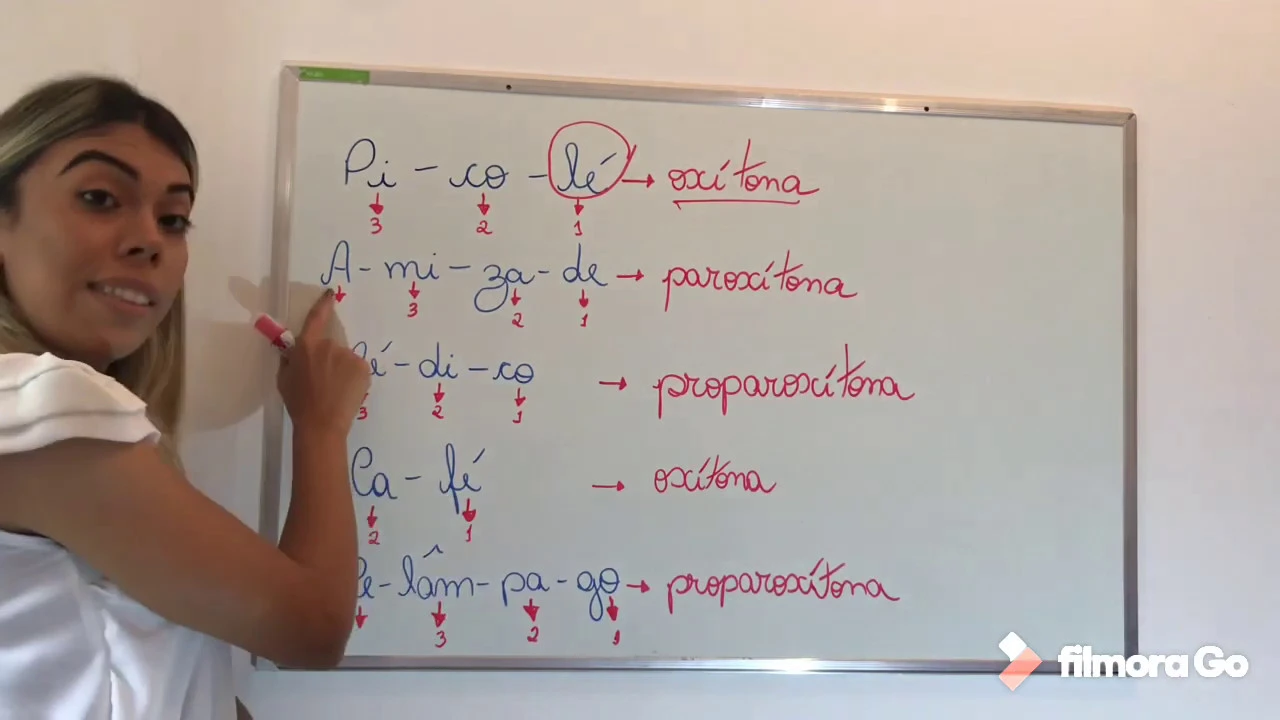 Pi - co - lé → oxítona
3 2 1
A - mi - za - de → paroxítona
3 2 1
é - di - co → proparoxítona
3 2 1
Ca - fé → oxítona
2 1
e - lâm - pa - go → proparoxítona
3 2 1
filmora Go